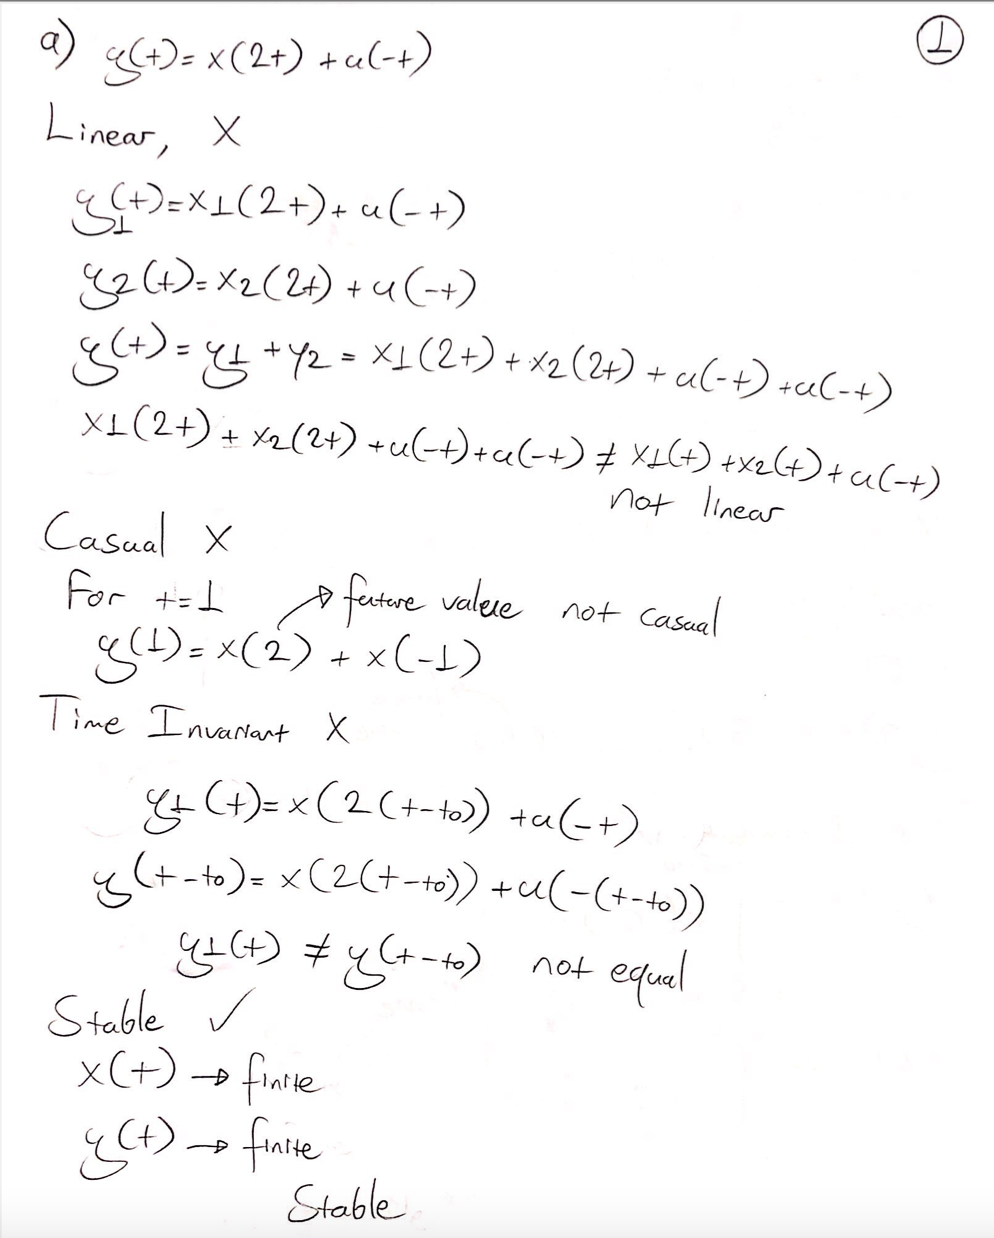 ①
a) y(t)= x(2t) + u(-t)
Linear, X
y1(t)= x1(2t) + u(-t)
y2(t)= x2(2t) + u(-t)
y(t) = y1 + y2 = x1(2t) + x2(2t) + u(-t) + u(-t)
x1(2t) + x2(2t) + u(-t) + u(-t) ≠ x1(t) + x2(t) + u(-t)
not linear
Casual X
For t=1 → future value not casual
y(1) = x(2) + x(-1)
Time Invariant X
y1(t)= x(2(t-to)) + u(-t)
y(t-to)= x(2(t-to)) + u(-(t-to))
y1(t) ≠ y(t-to) not equal
Stable ✓
x(t) → finite
y(t) → finite
Stable